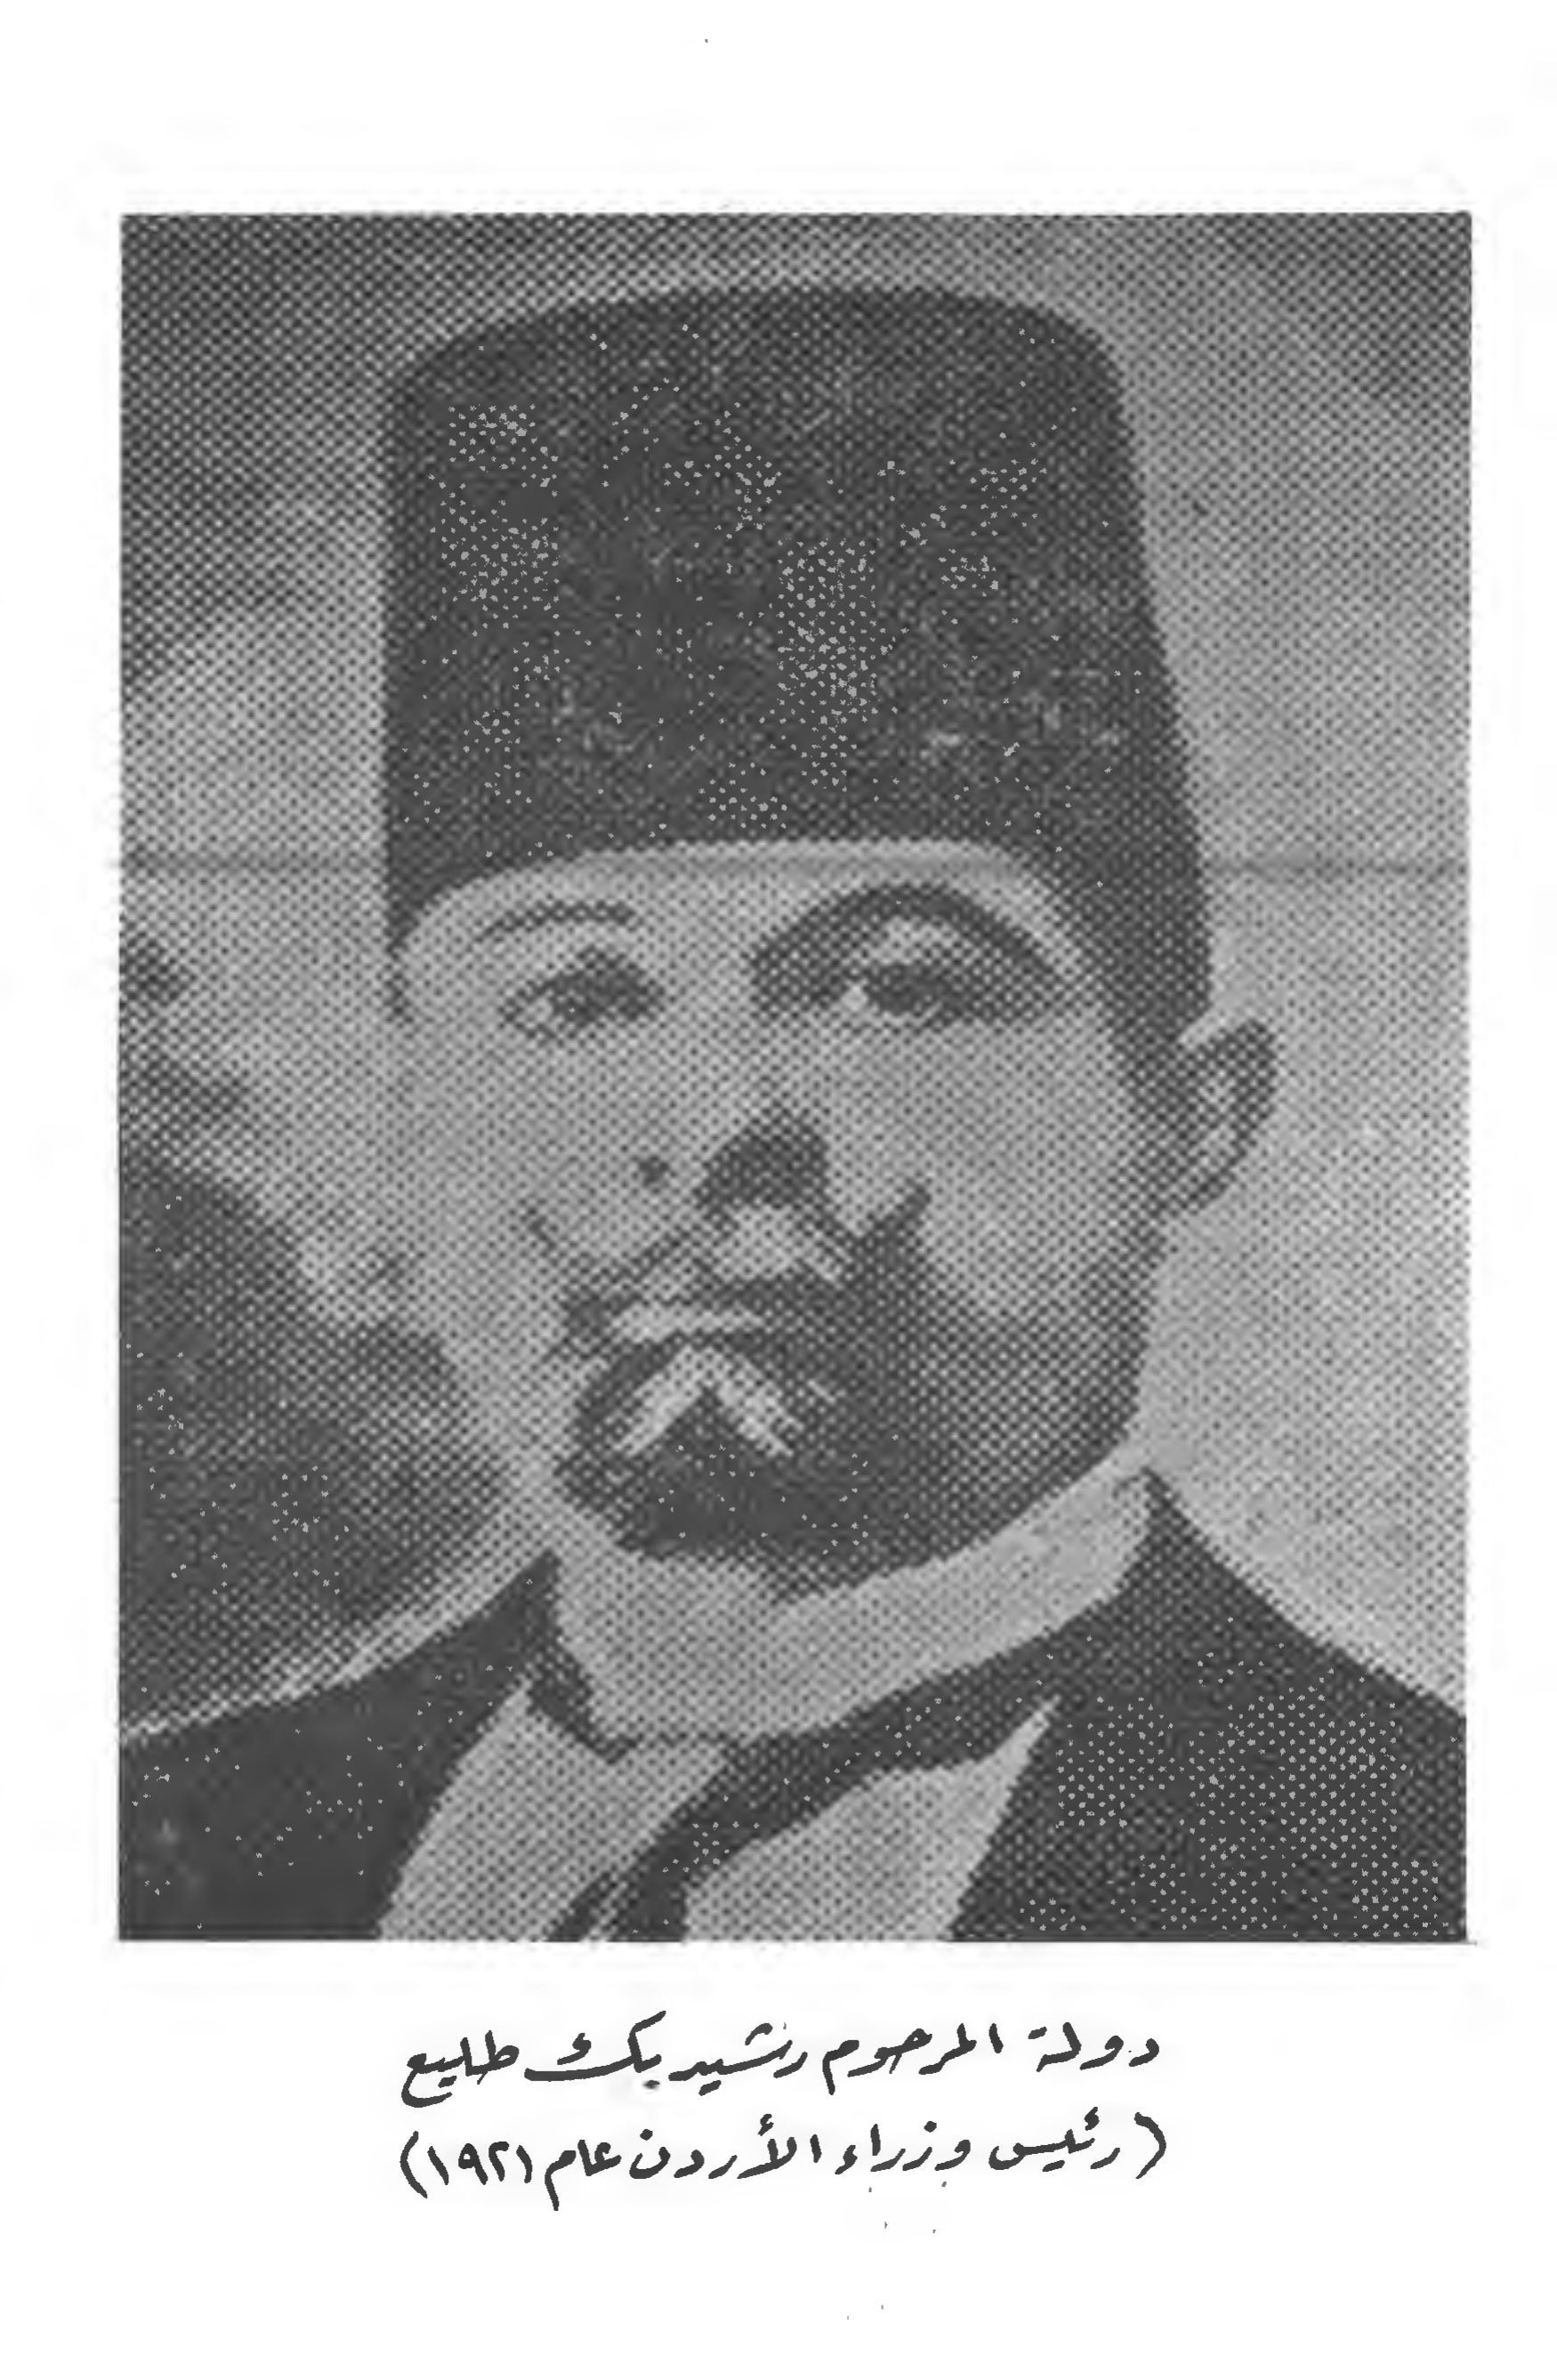 دولة المرحوم رشيد بك طليع
(رئيس وزراء الأردن عام ١٩٢١)